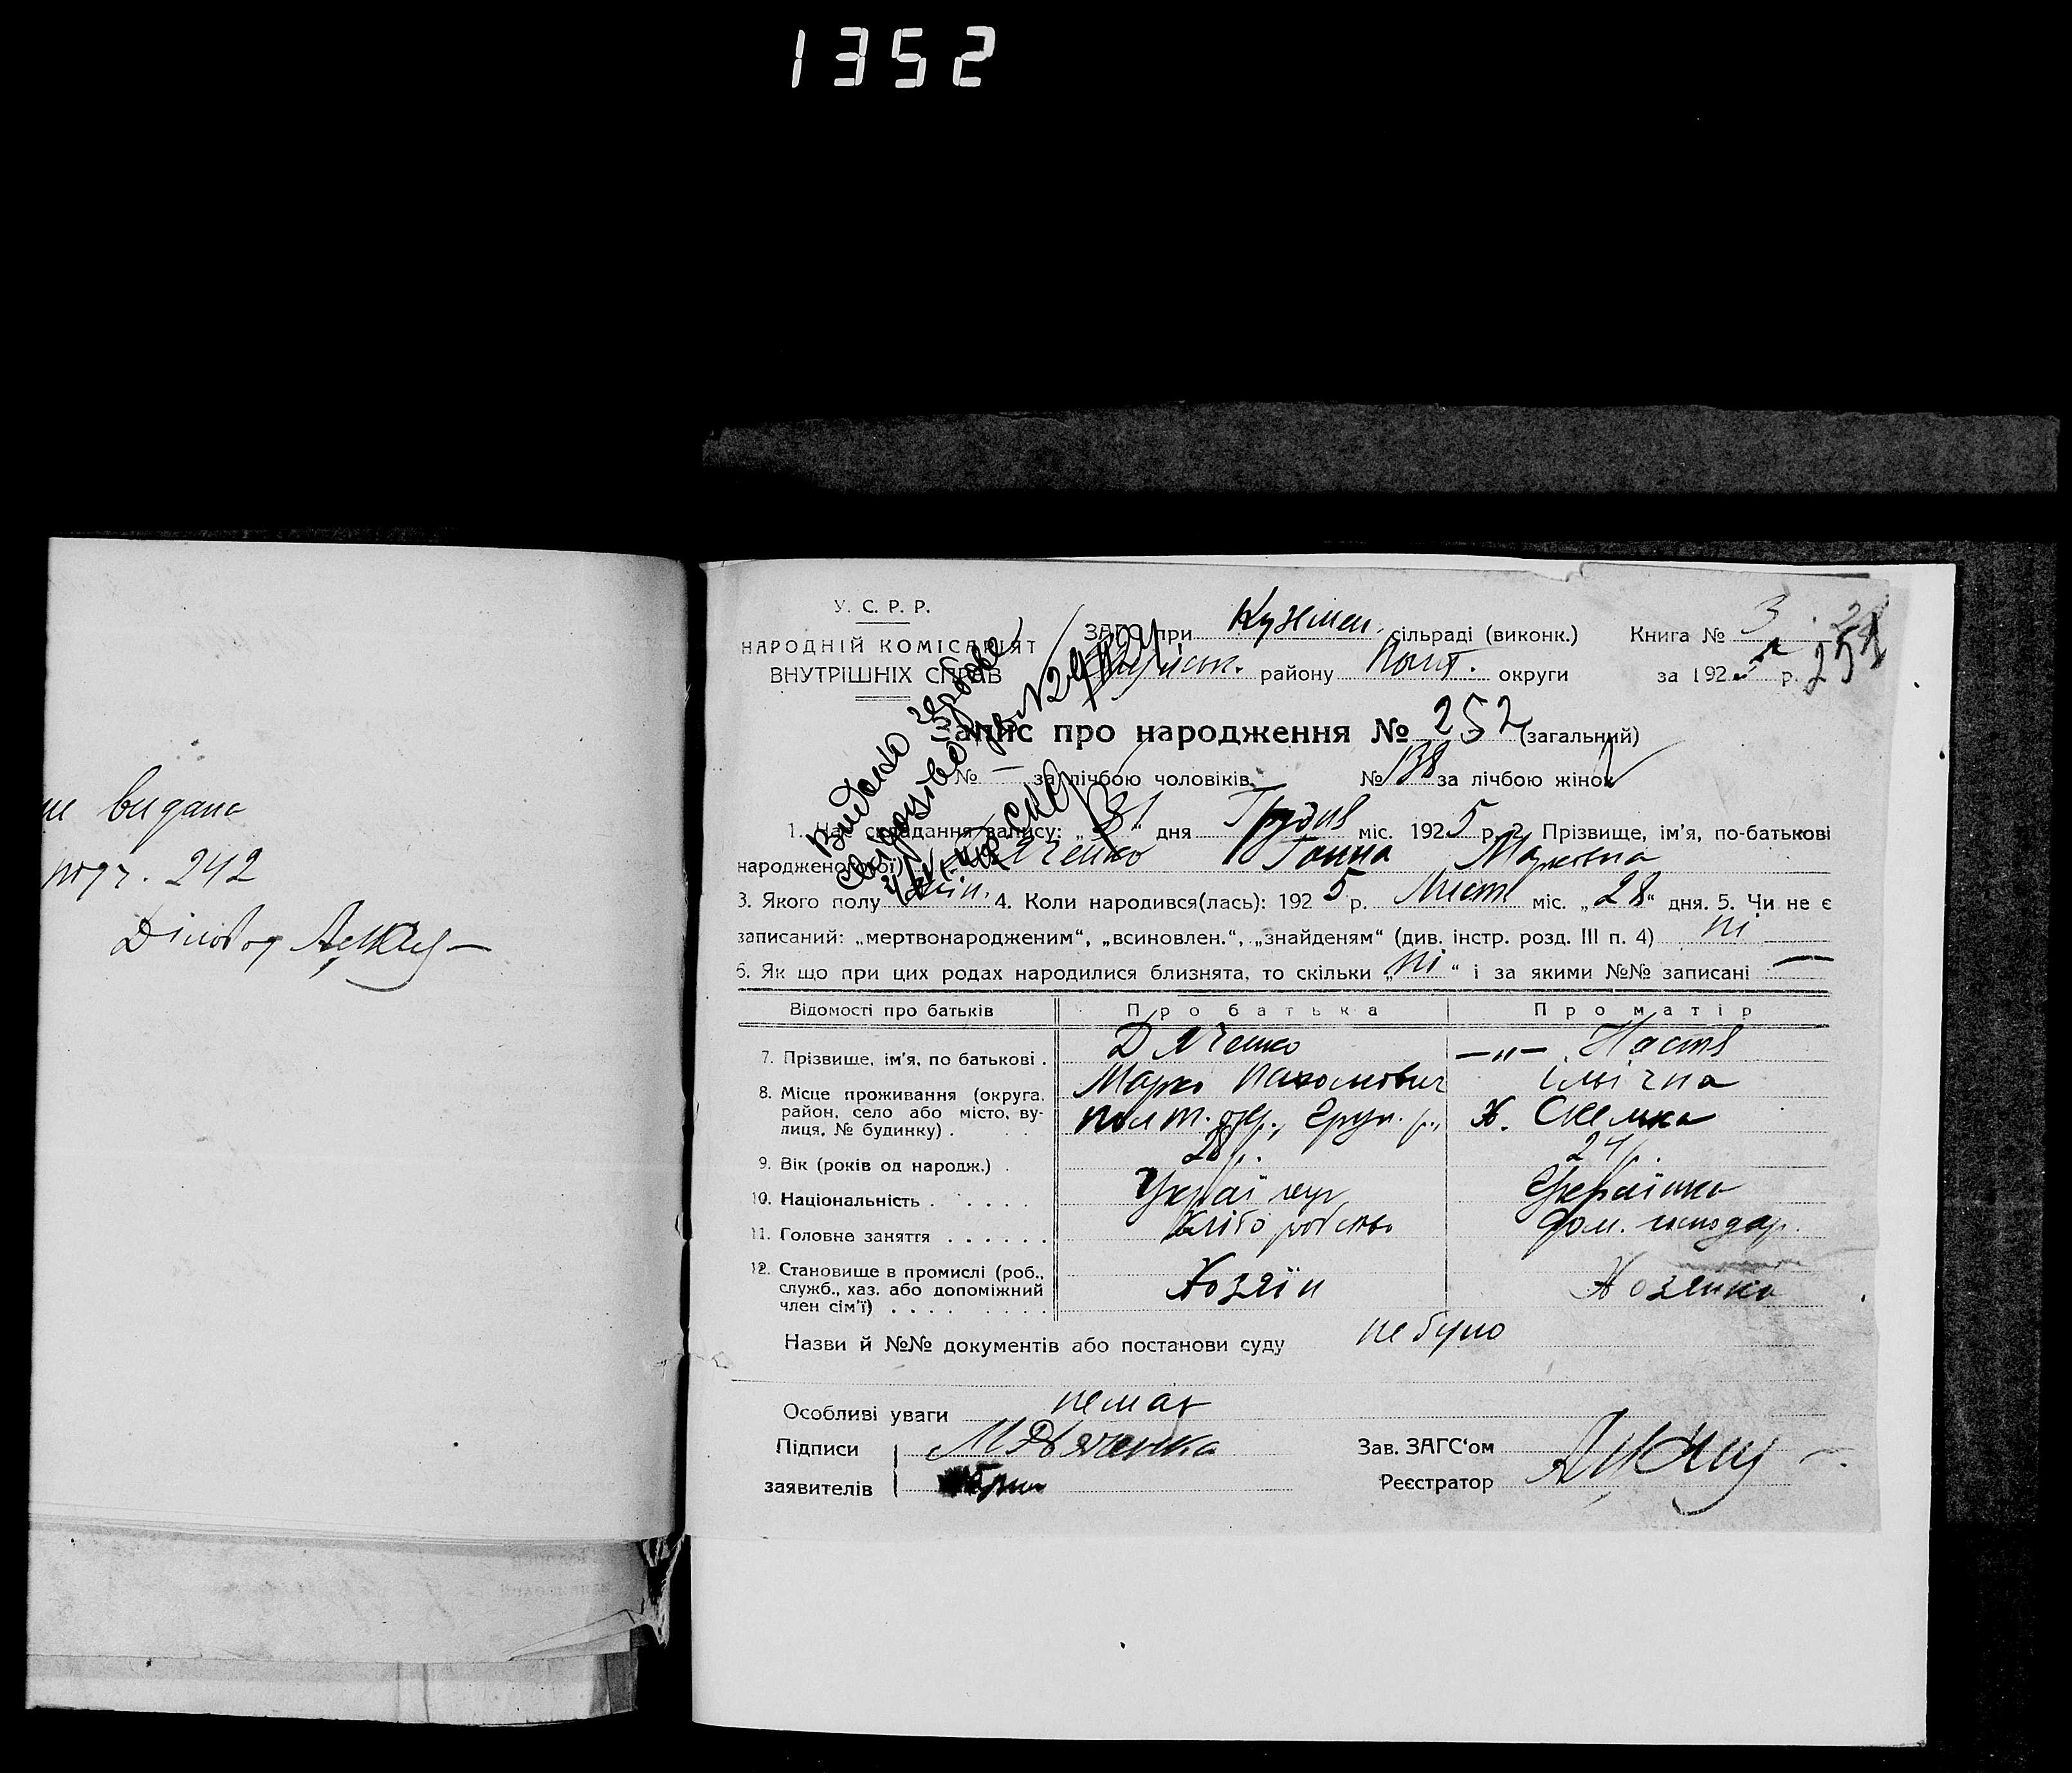 1352
не видана
подз. 242
Діловод
У. С. Р. Р.
НАРОДНІЙ КОМІСАРІЯТ
ВНУТРІШНІХ СПРАВ
ЗАГС при Куземен. сільраді (виконк.)
району Полт. округи
Книга № 3
за 1925 р.
251
Видано
Запис про народження № 252 (загальний)
№ — за лічбою чоловіків № 138 за лічбою жінок
1. Час складання запису: „31“ дня Грудня міс. 1925 р. 2. Прізвище, ім'я, по-батькові
народженого(ої) Дяченко Ганна Марковна
3. Якого полу жін. 4. Коли народився(лась): 1925 р. Лист. міс. „28“ дня. 5. Чи не є
записаний: „мертвонародженим“, „всиновлен.“, „знайденям“ (див. інстр. розд. III п. 4) ні
6. Як що при цих родах народилися близнята, то скільки „ні“ і за якими №№ записані —
Відомості про батьків Про батька Про матір
7. Прізвище, ім'я, по батькові . Дяченко —„— Настя
Марко Пахомович Іллічна
8. Місце проживання (округа, район, село або місто, вулиця, № будинку) . Полт. окр., Грун. р., х. Скелька
9. Вік (років од народж.) . 28 р. 24 р.
10. Національність . . . . . Українець Українка
11. Головне заняття . . . . . . Хліборобство дом. господар.
12. Становище в промислі (роб., служб., хаз. або допоміжний член сім'ї) . . . . . . . . Хозяїн Хозяйка
Назви й №№ документів або постанови суду не було
Особливі уваги немає
Підписи М Дьяченка Зав. ЗАГС'ом
заявителів Реєстратор